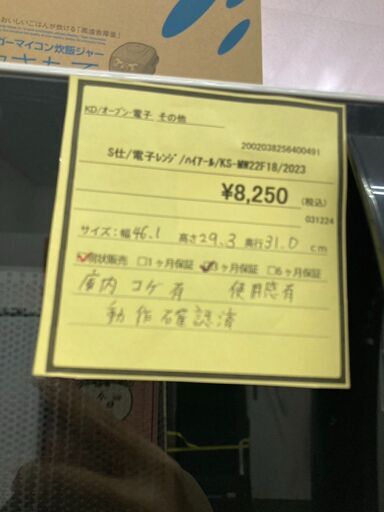 おいしいごはんが炊ける「黒遠赤厚釜」
ガーマイコン炊飯ジャー
KD/オーブン・電子 その他
2002038256400491
S仕/電子レンジ/ハイアール/KS-MW22F18/2023
¥8,250 (税込)
031224
サイズ:幅46.1 高さ29.3 奥行31.0 cm
☑現状販売 □1ヶ月保証 ☑3ヶ月保証 □6ヶ月保証
庫内コゲ有 使用感有
動作確認済